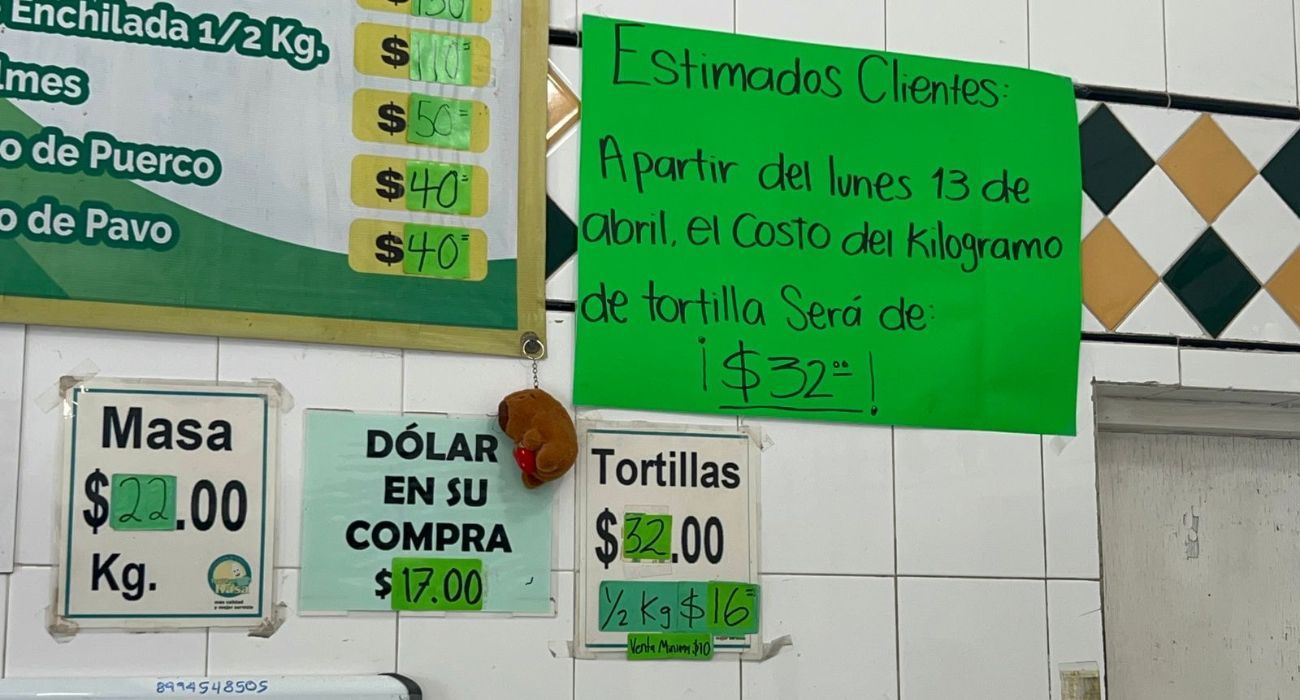 $130=
Enchilada 1/2 Kg. $110=
lmes $50=
o de Puerco $40=
o de Pavo $40=
Estimados Clientes:
Apartir del lunes 13 de
abril, el Costo del Kilogramo
de tortilla Será de:
¡$32°°!
Masa
$22.00
Kg.
DÓLAR
EN SU
COMPRA
$17.00
Tortillas
$32.00
1/2 Kg $16=
Venta Minima $10
8994548505